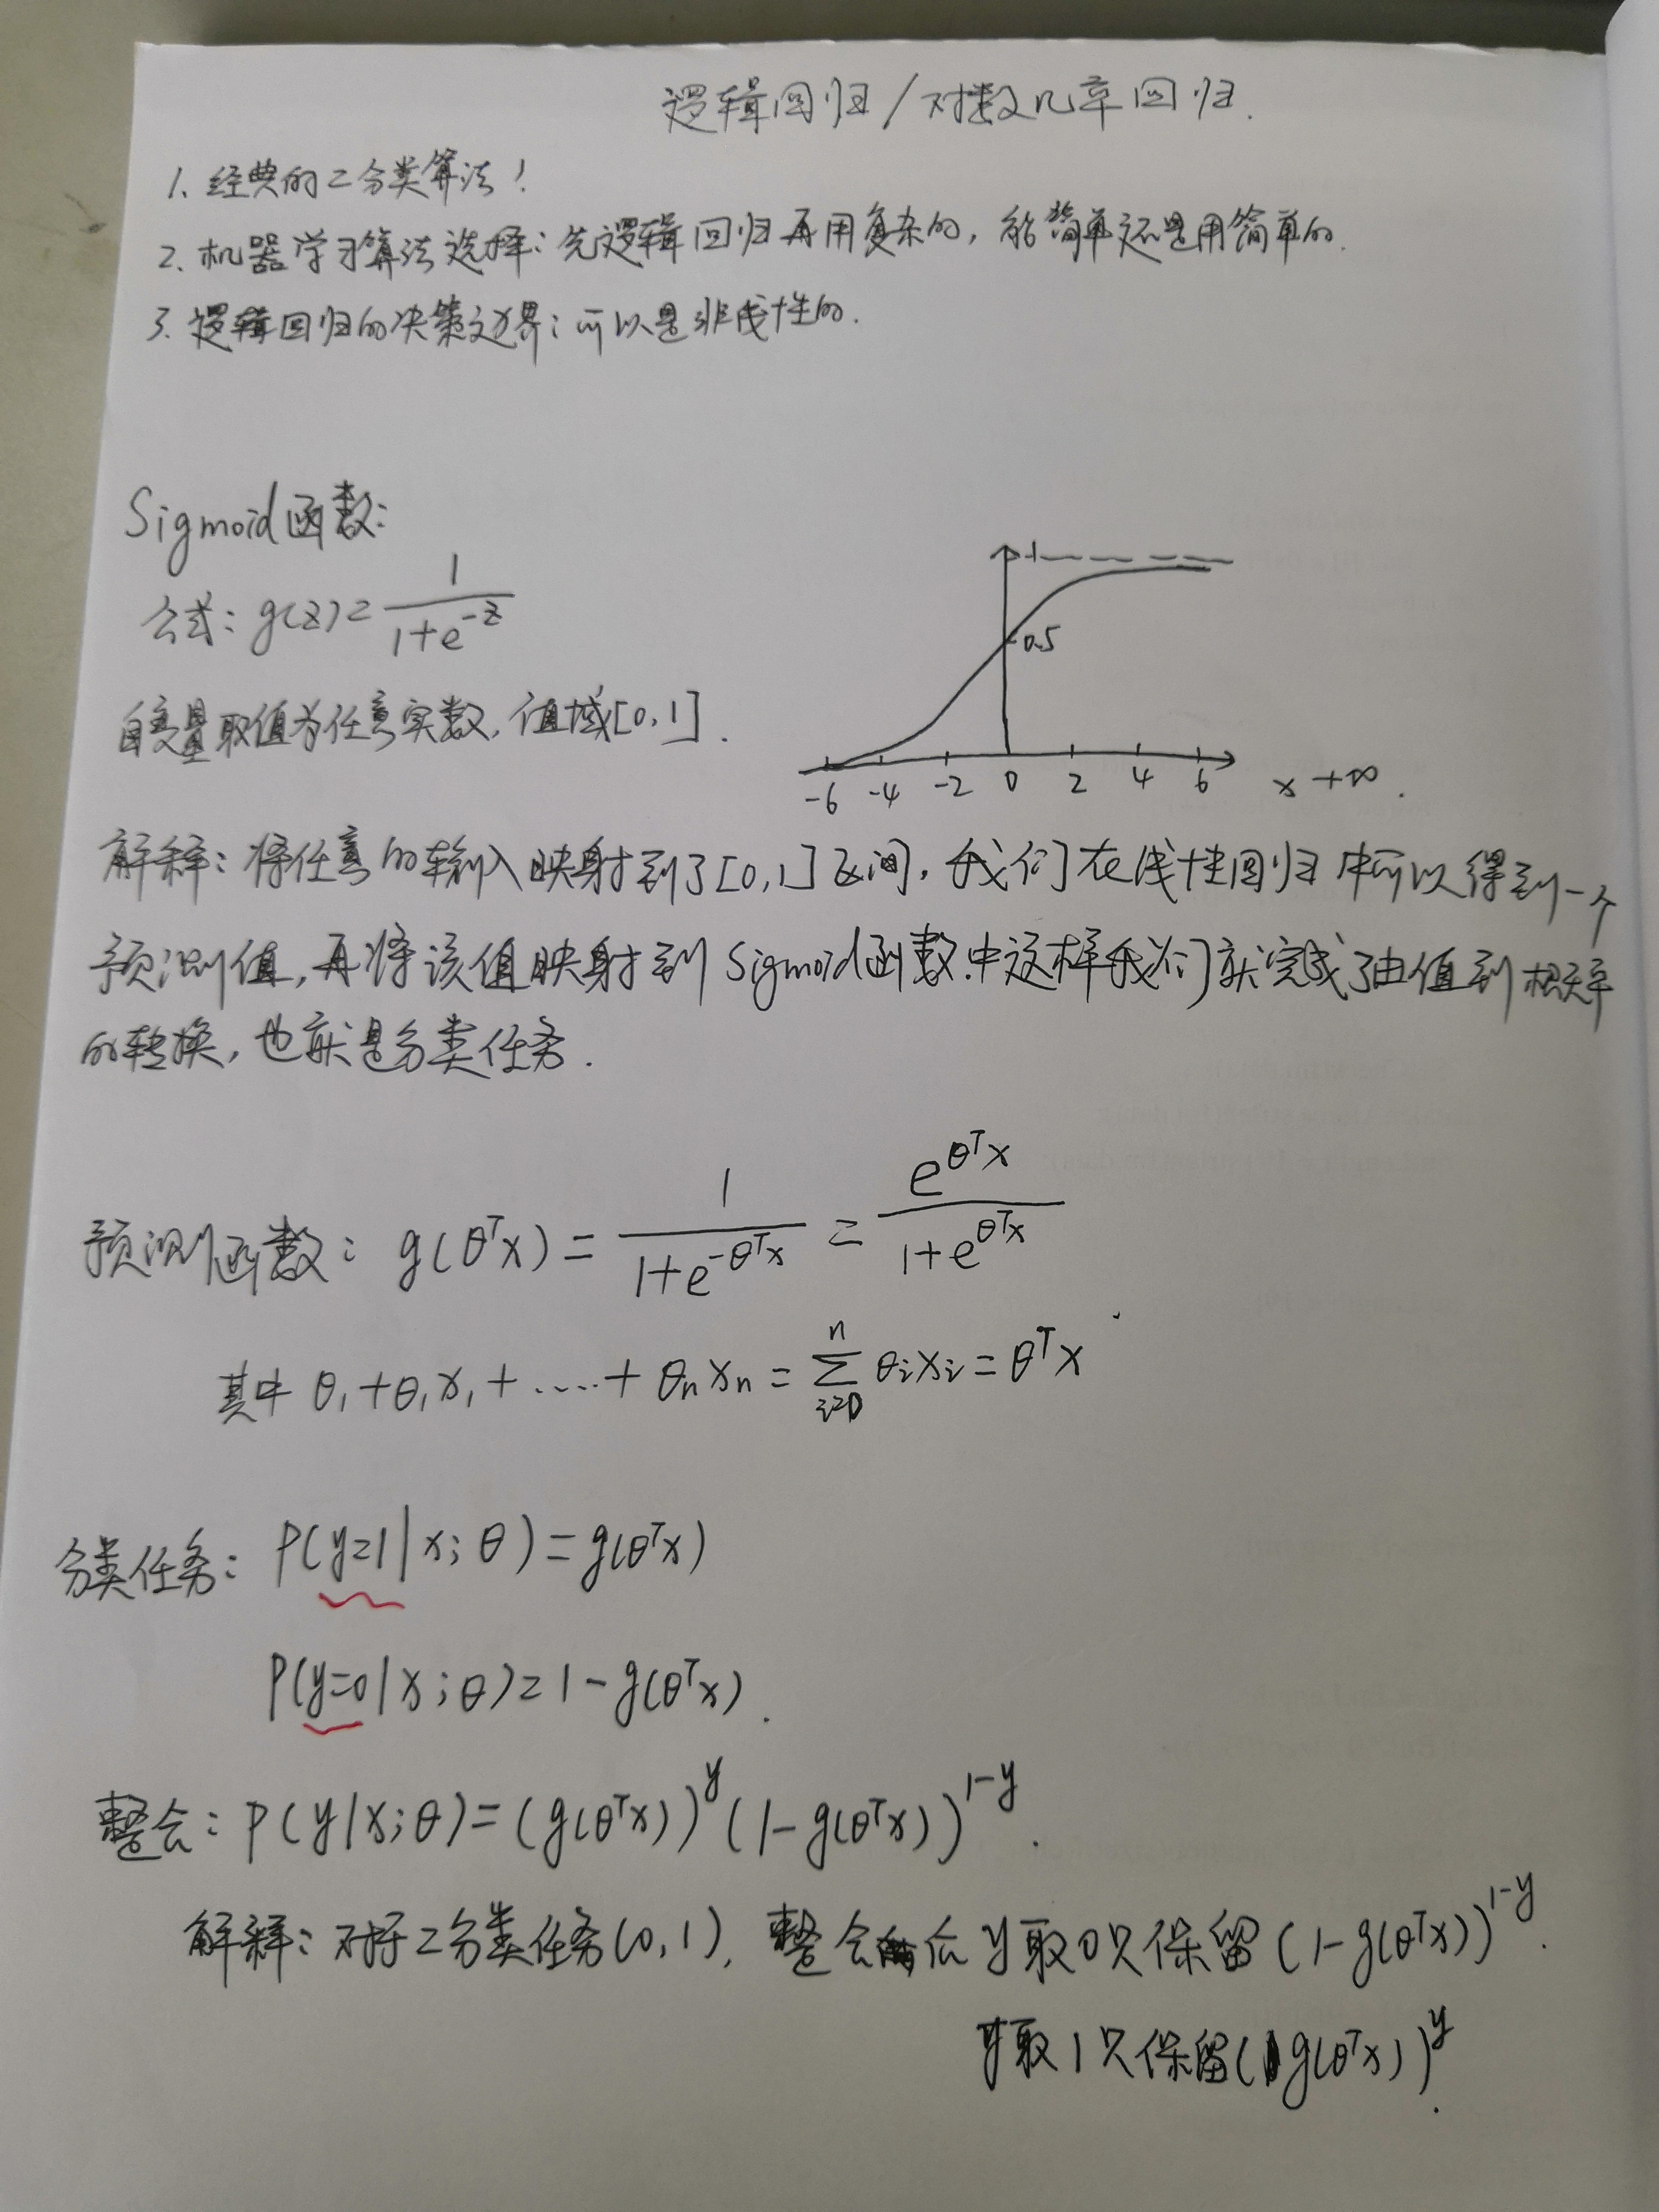 逻辑回归/对数几率回归.
1. 经典的二分类算法!
2. 机器学习算法选择: 先逻辑回归再用复杂的, 能简单还是用简单的.
3. 逻辑回归的决策边界: 可以是非线性的.
Sigmoid函数:
公式: g(z) = 1/(1+e^{-z})
自变量取值为任意实数, 值域[0,1].
1
0.5
-6 -4 -2 0 2 4 6 x +∞.
解释: 将任意的输入映射到了[0,1]区间, 我们在线性回归中可以得到一个
预测值, 再将该值映射到Sigmoid函数中这样我们就完成了由值到概率
的转换, 也就是分类任务.
预测函数: g(θ^T x) = 1/(1+e^{-θ^T x}) = e^{θ^T x}/(1+e^{θ^T x})
其中 θ₁+θ₁x₁+.....+θₙxₙ = Σ_{i=0}^{n} θᵢxᵢ = θ^T x
分类任务: P(y=1|x;θ) = g(θ^T x)
P(y=0|x;θ) = 1-g(θ^T x).
整合: P(y|x;θ) = (g(θ^T x))^y (1-g(θ^T x))^{1-y}.
解释: 对于二分类任务(0,1), 整合后y取0只保留(1-g(θ^T x))^{1-y}.
y取1只保留(g(θ^T x))^y.